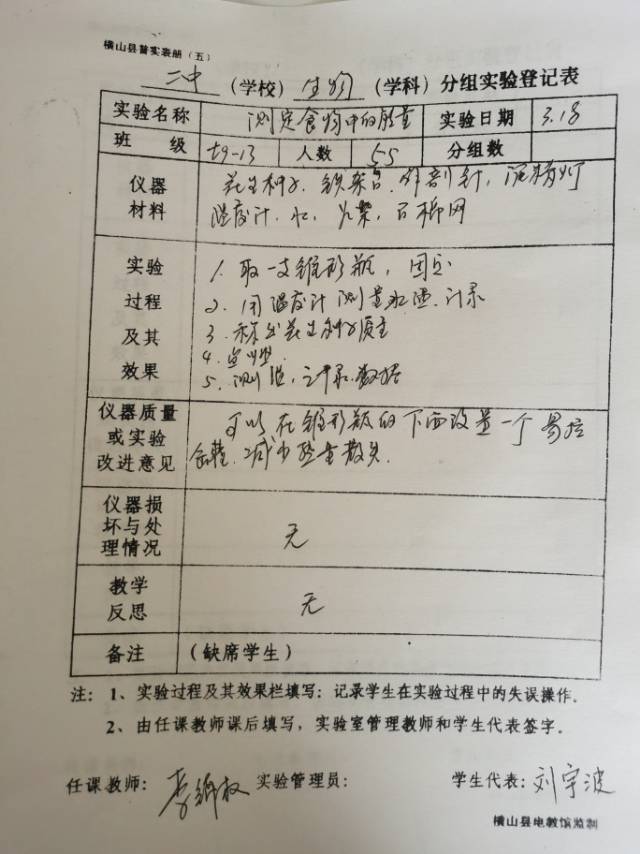 横山县普实表册（五）
二中（学校）生物（学科）分组实验登记表
实验名称 测定食物中的能量 实验日期 3.18
班级 七9-13 人数 55 分组数
仪器材料 花生种子、铁架台、解剖针，酒精灯
温度计、水、火柴，石棉网
实验过程及其效果 1、取一支锥形瓶，固定
2、用温度计测量水温、记录
3、称出花生种子质量
4、点燃
5、测温，记录数据
仪器质量或实验改进意见 可以在锥形瓶的下面设置一个易拉
罐，减少热量散失
仪器损坏与处理情况 无
教学反思 无
备注 （缺席学生）
注：1、实验过程及其效果栏填写：记录学生在实验过程中的失误操作。
2、由任课教师课后填写，实验室管理教师和学生代表签字。
任课教师：李 实验管理员： 学生代表：刘宇波
横山县电教馆监制